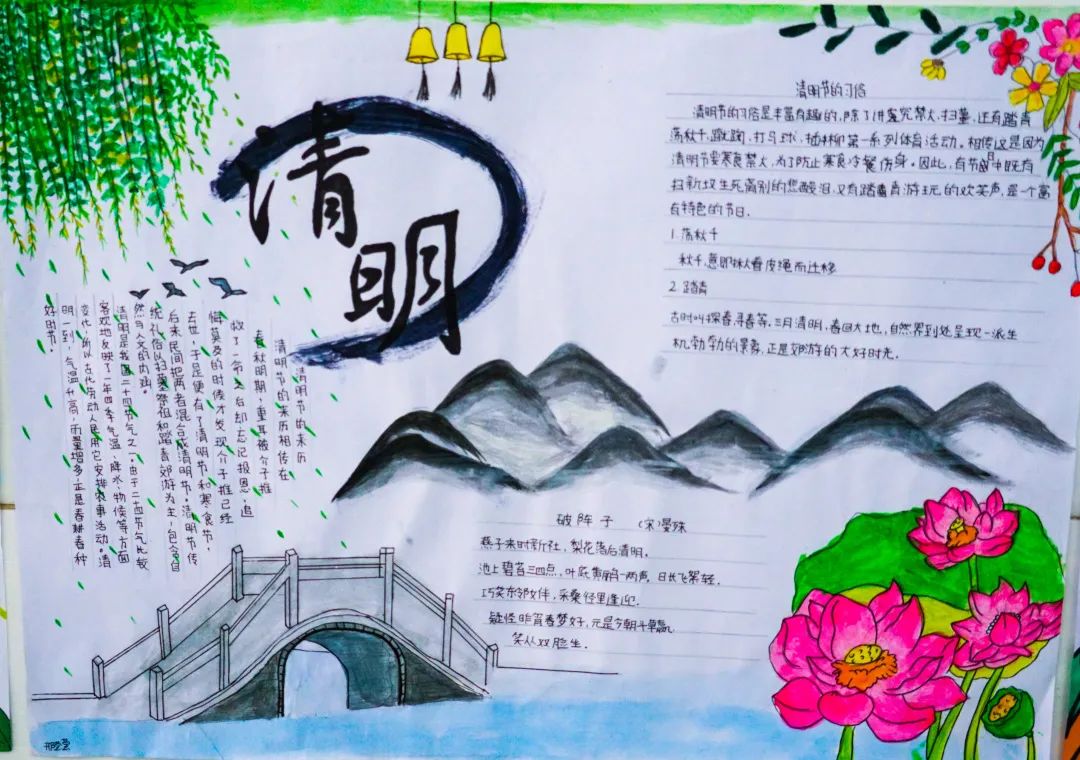 清明
清明节的习俗
清明节的习俗是丰富有趣的,除了讲究禁火、扫墓,还有踏青
荡秋千、蹴鞠、打马球、插柳第一系列体育活动。相传这是因为
清明节要寒食禁火,为了防止寒食冷餐伤身。因此,有节中既有
扫新坟生死离别的悲酸泪,又有踏青游玩的欢笑声,是一个富
有特色的节日.
1.荡秋千
秋千,意即揪着皮绳而迁移
2.踏青
古时叫探春寻春等.三月清明,春回大地,自然界到处呈现一派生
机勃勃的景象,正是郊游的大好时光.
清明节的来历
清明节的来历相传在
春秋明期,重耳被介子推
救了一命之后却忘记报恩,追
悔莫及的时候才发现介子推已经
去世,于是便有了清明节和寒食节,
后来民间把两者混合成清明节。清明节传
统礼俗以扫墓祭祖和踏青郊游为主,包含自
然与人文的内涵。
清明是我国二十四节气之一,由于二十四节气比较
客观地反映了一年四季气温、降水、物候等方面
变化,所以古代劳动人民用它安排农事活动。清
明一到,气温升高,雨量增多,正是春耕春种
好时节。
破阵子 (宋)晏殊
燕子来时新社,梨花落后清明。
池上碧苔三四点,叶底黄鹂一两声。日长飞絮轻.
巧笑东邻女伴,采桑径里逢迎.
疑怪昨宵春梦好,元是今朝斗草赢.
笑从双脸生.